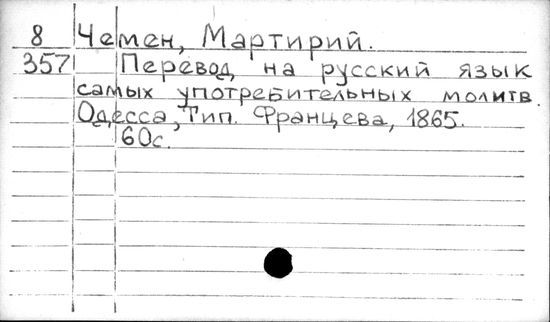 8 Чемен, Мартирий.
357 Перевод на русский язык
самых употребительных молитв.
Одесса, Тип. Францева, 1865.
60с.